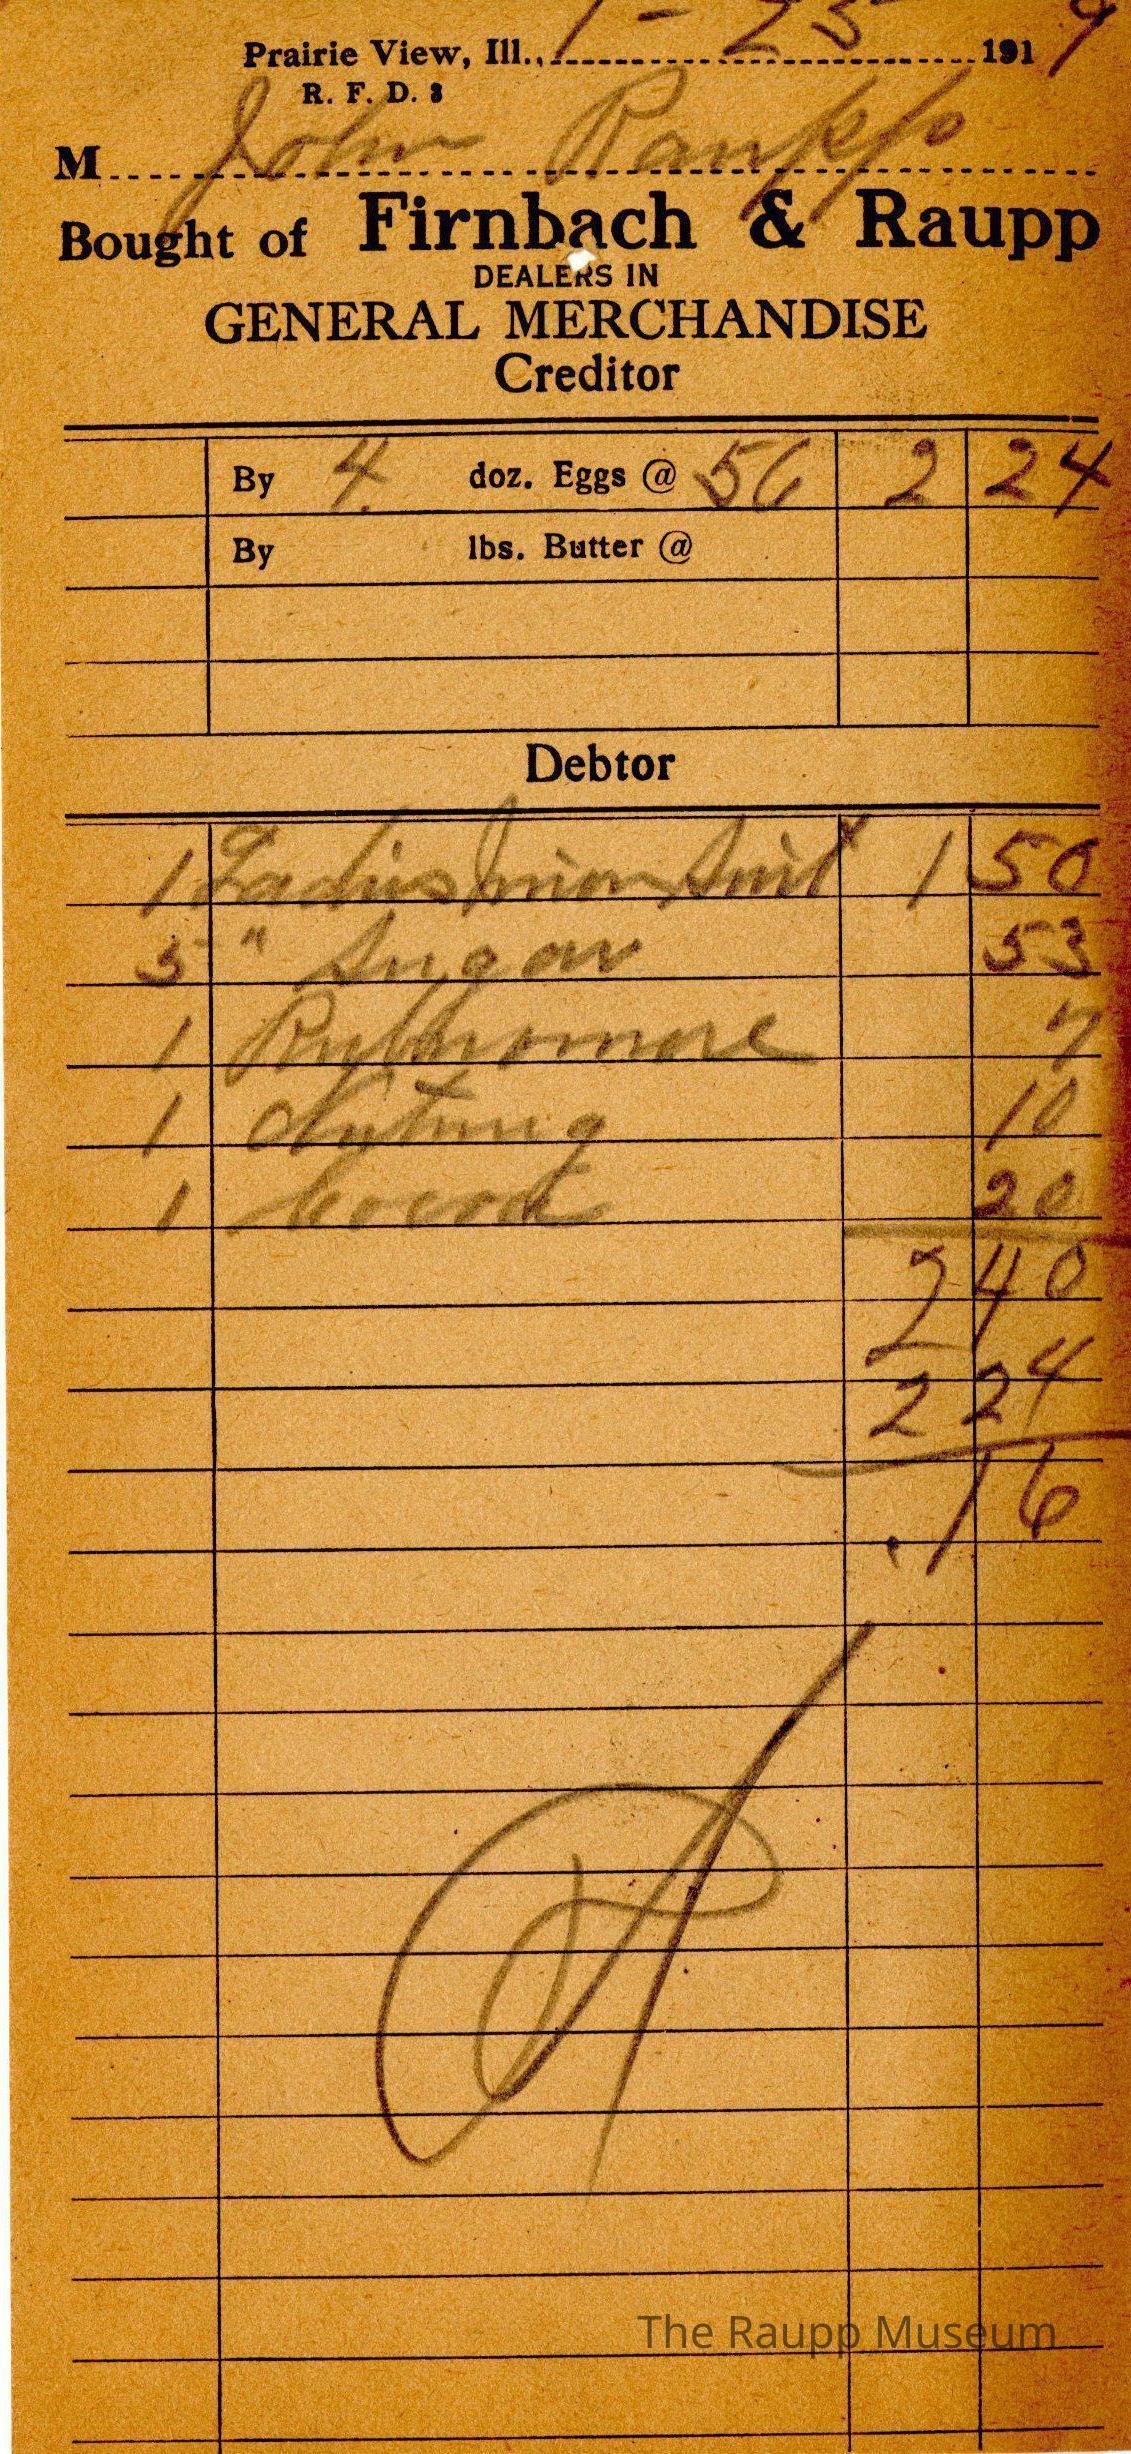 Prairie View, Ill., 1-25 1919
R. F. D. 3
M John Raupp
Bought of Firnbach & Raupp
DEALERS IN
GENERAL MERCHANDISE
Creditor
By 4 doz. Eggs @ 56 2 24
By lbs. Butter @
Debtor
1 Ladies Union Suit 1 50
5 " Sugar 53
1 7
1 Nutmeg 10
1 Cocoa 20
2 40
2 24
.16
The Raupp Museum